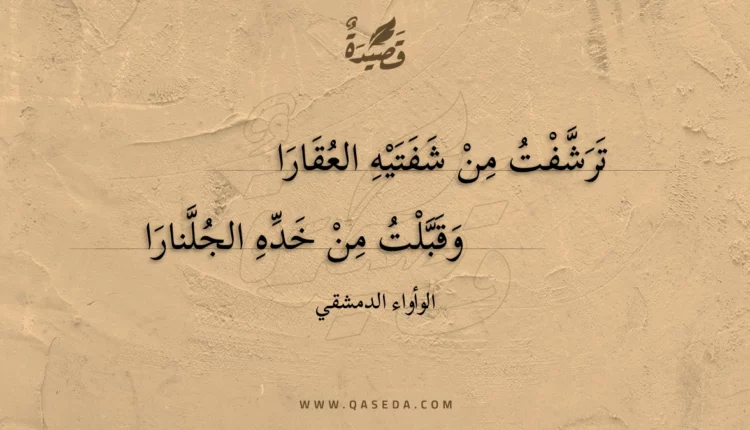 قَصِيدَةٌ
تَرَشَّفْتُ مِنْ شَفَتَيْهِ العُقَارَا
وَقَبَّلْتُ مِنْ خَدِّهِ الجُلَّنارَا
الوأواء الدمشقي
WWW.QASEDA.COM